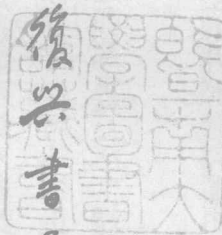 復兴書
暨南大
學圖書